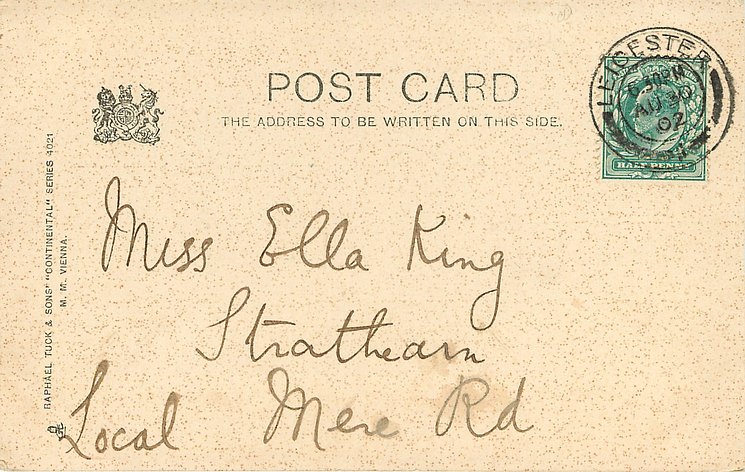 POST CARD
THE ADDRESS TO BE WRITTEN ON THIS SIDE.
LEICESTER
6.30PM
AU 30
02
HALF PENNY
RAPHAEL TUCK & SONS' "CONTINENTAL" SERIES 4021
M. M. VIENNA.
Miss Ella King
Strathearn
Mere Rd
Local